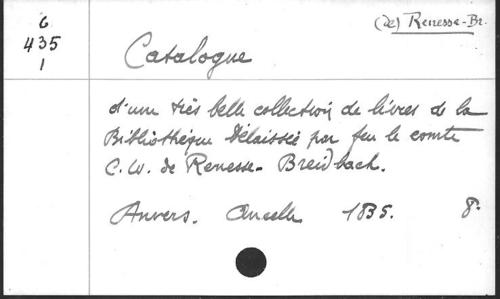 6
435
1
(de) Renesse-Br.
Catalogue
d'une très belle collection de livres de la
Bibliothèque Délaissée par feu le comte
C. W. de Renesse-Breidbach.
Anvers. Ancelle 1835. 8°